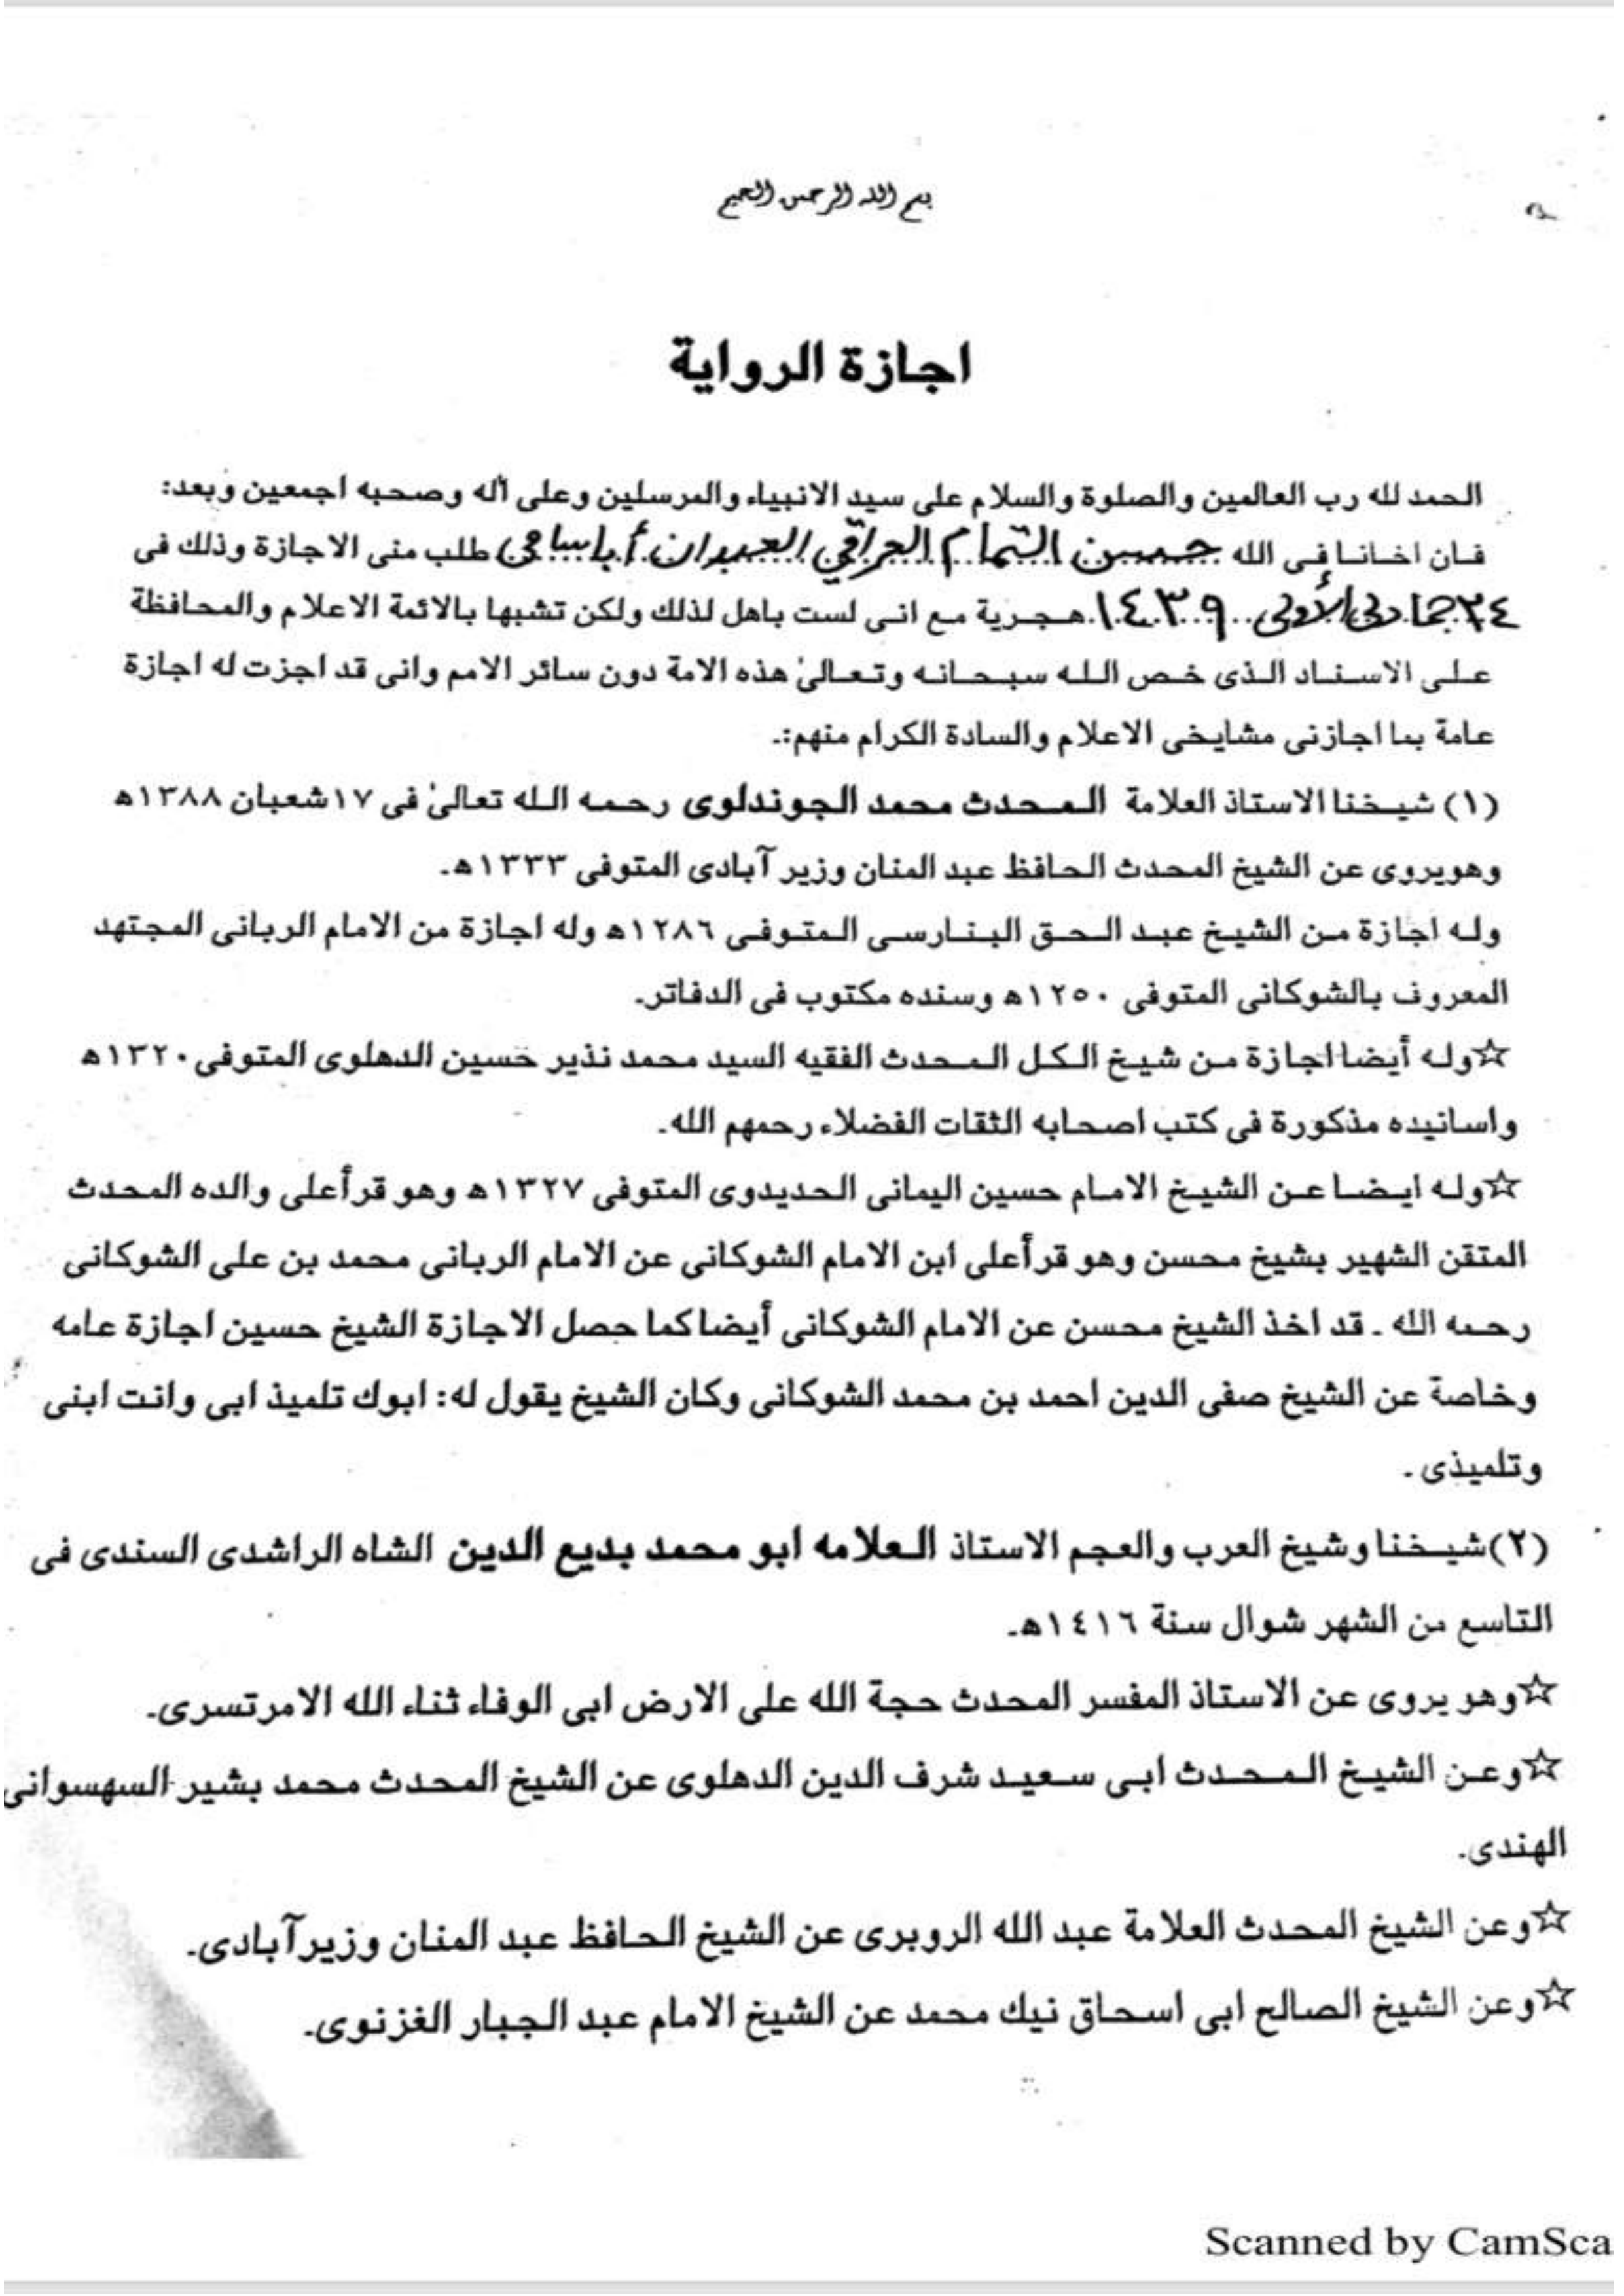 بسم الله الرحمن الرحيم
اجازة الرواية
الحمد لله رب العالمين والصلوة والسلام على سيد الانبياء والمرسلين وعلى أله وصحبه اجمعين وبعد:
فان اخانا فى الله حسين الشمام العراقي العبيدان طلب منى الاجازة وذلك فى
جمادى الأولى ١٤٣٩ هجرية مع انى لست باهل لذلك ولكن تشبها بالائمة الاعلام والمحافظة
على الاسناد الذى خص الله سبحانه وتعالىٰ هذه الامة دون سائر الامم وانى قد اجزت له اجازة
عامة بما اجازنى مشايخى الاعلام والسادة الكرام منهم:ـ
(١) شيخنا الاستاذ العلامة المحدث محمد الجوندلوى رحمه الله تعالىٰ فى ١٧ شعبان ١٣٨٨ه
وهويروى عن الشيخ المحدث الحافظ عبد المنان وزير آبادى المتوفى ١٣٣٣ه۔
وله اجازة من الشيخ عبد الحق البنارسى المتوفى ١٢٨٦ه وله اجازة من الامام الربانى المجتهد
المعروف بالشوكانى المتوفى ١٢٥٠ه وسنده مكتوب فى الدفاتر۔
☆وله أيضا اجازة من شيخ الكل المحدث الفقيه السيد محمد نذير حسين الدهلوى المتوفى ١٣٢٠ه
واسانيده مذكورة فى كتب اصحابه الثقات الفضلاء رحمهم الله۔
☆وله ايضا عن الشيخ الامام حسين اليمانى الحديدوى المتوفى ١٣٢٧ه وهو قرأعلى والده المحدث
المتقن الشهير بشيخ محسن وهو قرأعلى ابن الامام الشوكانى عن الامام الربانى محمد بن على الشوكانى
رحمه الله ۔ قد اخذ الشيخ محسن عن الامام الشوكانى أيضا كما حصل الاجازة الشيخ حسين اجازة عامه
وخاصة عن الشيخ صفى الدين احمد بن محمد الشوكانى وكان الشيخ يقول له: ابوك تلميذ ابى وانت ابنى
وتلميذى ۔
(٢) شيخنا وشيخ العرب والعجم الاستاذ العلامه ابو محمد بديع الدين الشاه الراشدى السندى فى
التاسع من الشهر شوال سنة ١٤١٦ه۔
☆وهو يروى عن الاستاذ المفسر المحدث حجة الله على الارض ابى الوفاء ثناء الله الامرتسرى۔
☆وعن الشيخ المحدث ابى سعيد شرف الدين الدهلوى عن الشيخ المحدث محمد بشير السهسوانى
الهندى۔
☆وعن الشيخ المحدث العلامة عبد الله الروبرى عن الشيخ الحافظ عبد المنان وزيرآبادى۔
☆وعن الشيخ الصالح ابى اسحاق نيك محمد عن الشيخ الامام عبد الجبار الغزنوى۔
Scanned by CamSca